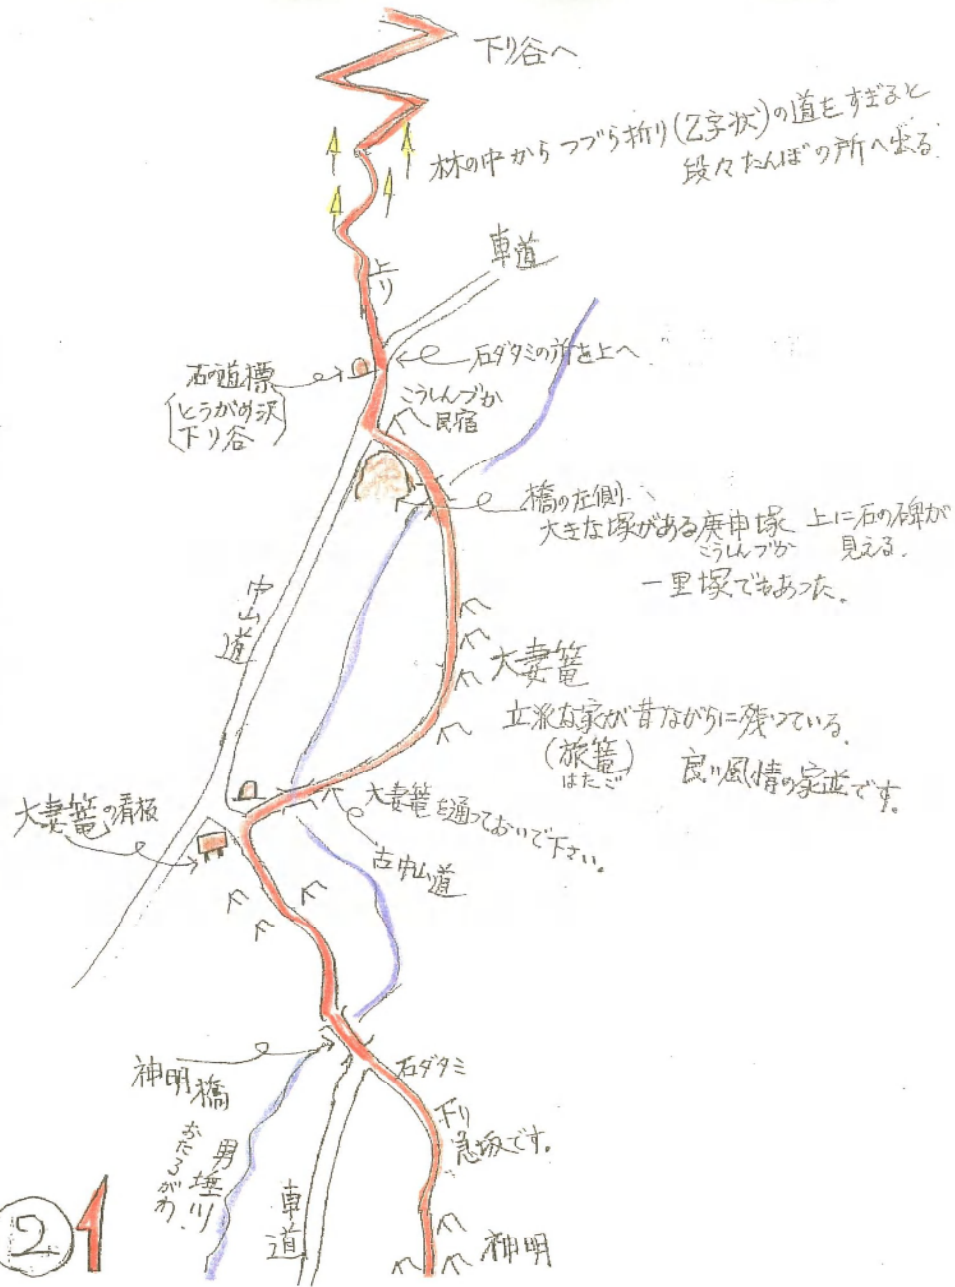 下り谷へ
林の中からつづら折り(乙字状)の道をすぎると
段々たんぼの所へ出る。
車道
上り
石ダタミの所を上へ
石の道標
(とうがめ沢
下り谷)
こうしんづか
民宿
橋の左側。
大きな塚がある庚申塚 上に石の碑が
こうしんづか 見える。
一里塚でもあった。
中山道
大妻篭
立派な家が昔ながらに残っている。
(旅篭)
はたご
良い風情の家並です。
大妻篭の看板
大妻篭を通っておいで下さい。
古中山道
神明橋
石ダタミ
下り
急坂です。
男埵川
おたるがわ
車道
神明
2